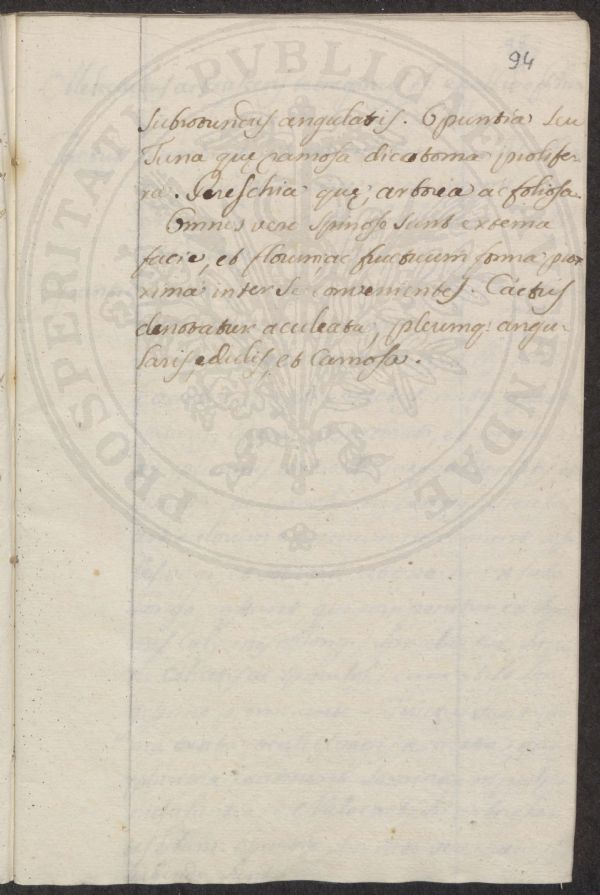 94
subrotundis angulatis. Opuntia seu
Tuna quę ramosa dicotoma prolife-
ra. Pereschia quę, arborea ac foliosa.
Omnes vere spinosę sunt externa
facie, et florum, ac fructuum forma pror
rima inter se convenientes. Cactus
denotatur aculeata, plerumq: angu-
laris, edulis, et carnosa.
PROSPERITATI PVBLICAE AVGENDAE